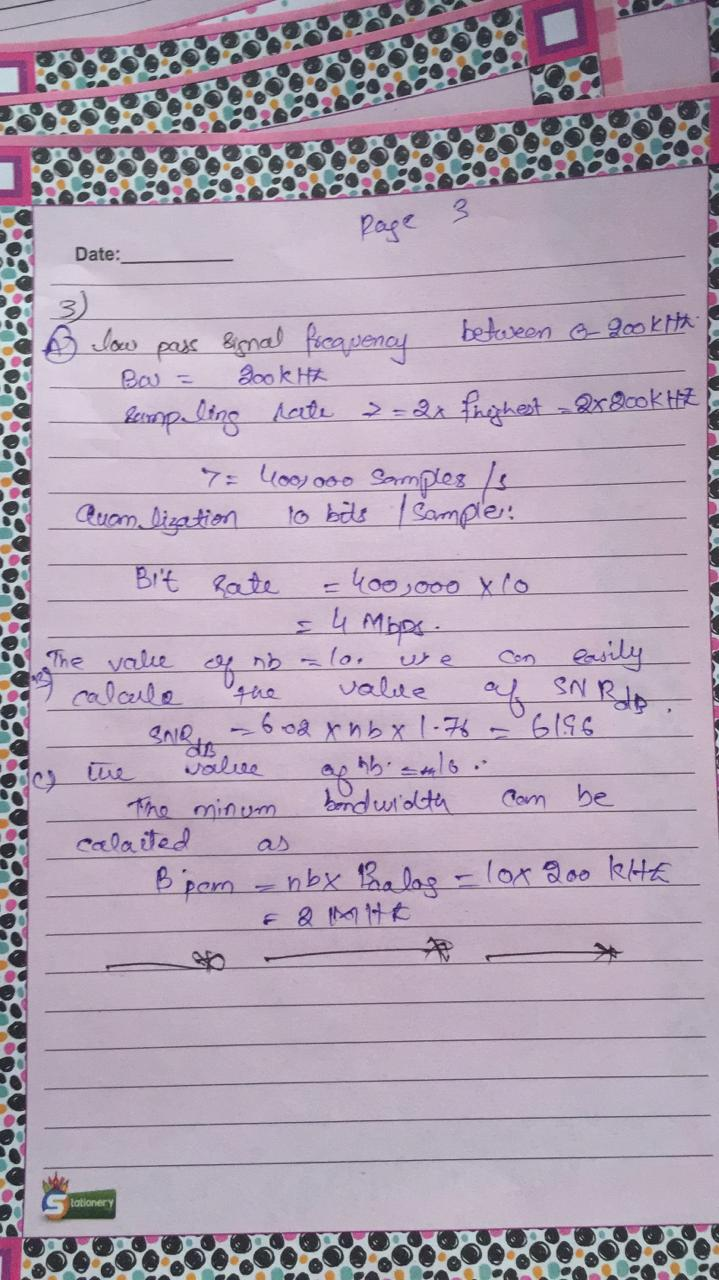 Page 3
Date:
3)
A) low pass signal frequency between 0-200kHz.
Bw = 200kHz
Sampling rate >= 2x fhighest = 2x200kHz
>= 400,000 samples/s
Quantization 10 bits/Sample:
Bit Rate = 400,000 x 10
= 4 Mbps.
The value of nb = 10. we can easily
B) calcule the value of SNRdB.
SNRdB = 6.02 x nb x 1.76 = 61.96
C) The value of nb. = 10 ..
The minum bandwidth can be
calaited as
B pcm = nb x Banalog = 10x 200 kHz
= 2 MHz
Stationery